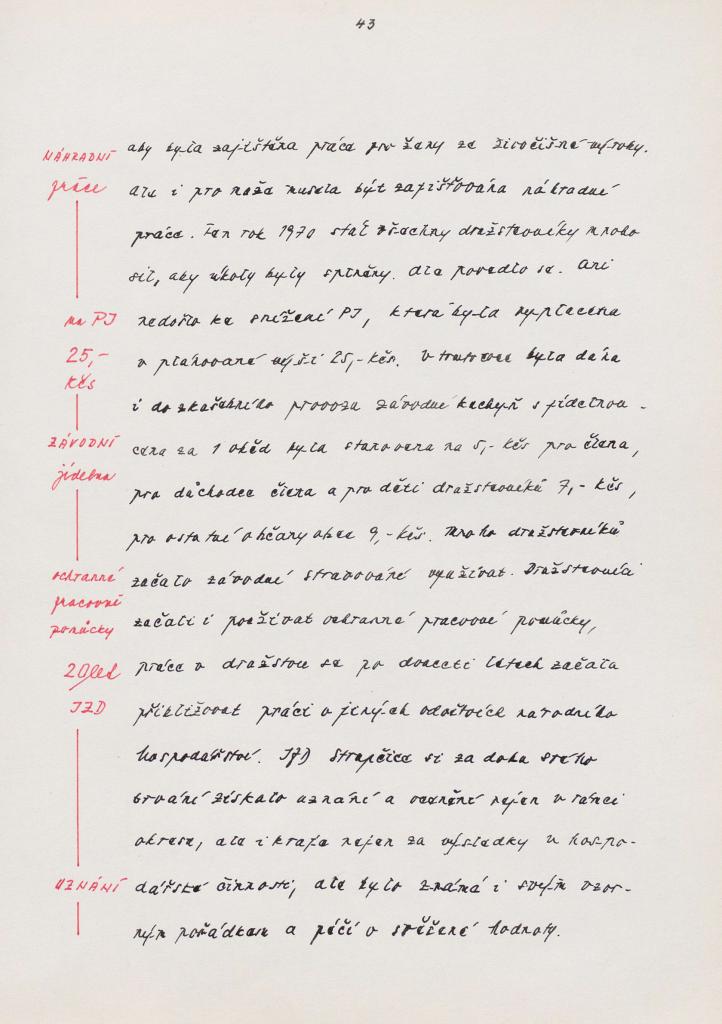 43
NÁHRADNÍ
práce
na PJ
25,-
kčs
ZÁVODNÍ
jídelna
ochranné
pracovní
pomůcky
20let
JZD
UZNÁNÍ
aby byla zajištěna práce pro ženy ze živočišné výroby.
ale i pro muže musela být zajišťována náhradné
práce. Ten rok 1970 stál všechny družstevníky mnoho
sil, aby úkoly byly splněny. dle povedlo se. Ani
nedošlo ke snížení PJ, která byla vyplacena
v plánované výši 25,-kčs. V tomto roce byla dána
i do zkušebního provozu závodné kuchyň s jídelnou.
cena za 1 oběd byla stanovena na 5,- kčs pro člena,
pro důchodce člena a pro děti družstevníků 7,- kčs,
pro ostatné občany obce 9,-kčs. Mnoho družstevníků
začalo závodné stravováné využívat. Družstevníci
začali i používat ochranné pracovné pomůcky,
práce v družstvu se po dvaceti letech začala
přibližovat práci v jiných odvětvích národního
hospodářství. JZD Strupčice si za dobu svého
trvání získalo uznání a ocenění nejen v rámci
okresu, ale i kraje nejen za výsledky v hospo-
dářské činnosti, ale bylo známá i svým vzor-
ným pořádkem a péčí o svěřené hodnoty.